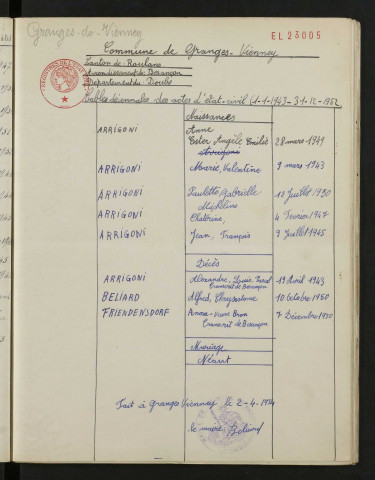 Granges-de-Vienney
EL 23005
Commune de Granges-Vienney
Canton de Roulans
Arrondissement de Besançon
Département du Doubs
Tables décennales des actes d'état-civil (1-1-1943-31-12-1952
Naissances
ARRIGONI Anne
Ester Angèle Emilie 28 mars 1949
ARRIGONI Marie, Valentine 9 mars 1943
ARRIGONI Paulette, Gabrielle 13 Juillet 1950
Micheline
ARRIGONI Catérine, 4 Février 1947
ARRIGONI Jean, François 9 Juillet 1945
Décès
ARRIGONI Alexandre, Louis, 19 Avril 1943
Transcrit de Besançon
BELIARD Alfred, Chrysostome 10 Octobre 1950
FRIENDENSDORF Anna 7 Décembre 1950
Transcrit de Besançon
Mariages
Néant
Fait à Granges Vienney le 2-4-1954
le maire: Beliard